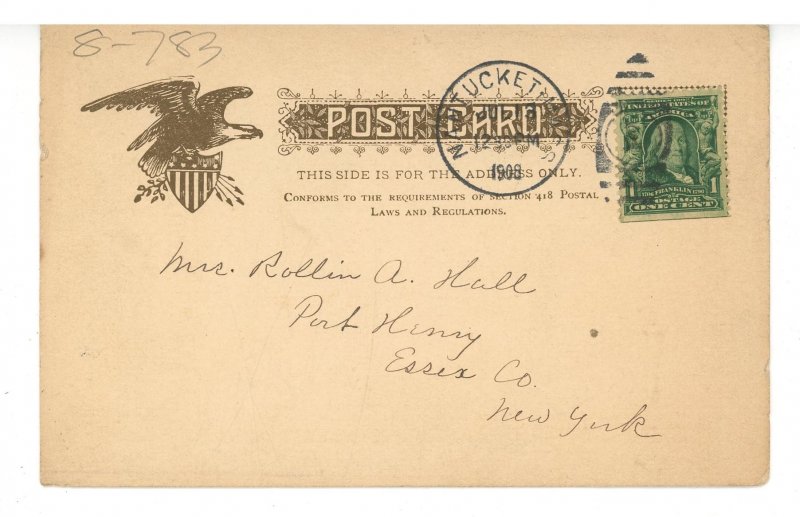 8-783
POST CARD
NANTUCKET
1908
THIS SIDE IS FOR THE ADDRESS ONLY.
CONFORMS TO THE REQUIREMENTS OF SECTION 418 POSTAL
LAWS AND REGULATIONS.
UNITED STATES OF
AMERICA
FRANKLIN
1
POSTAGE
ONE CENT
Mrs. Rollin A. Hall
Port Henry
Essex Co.
New York